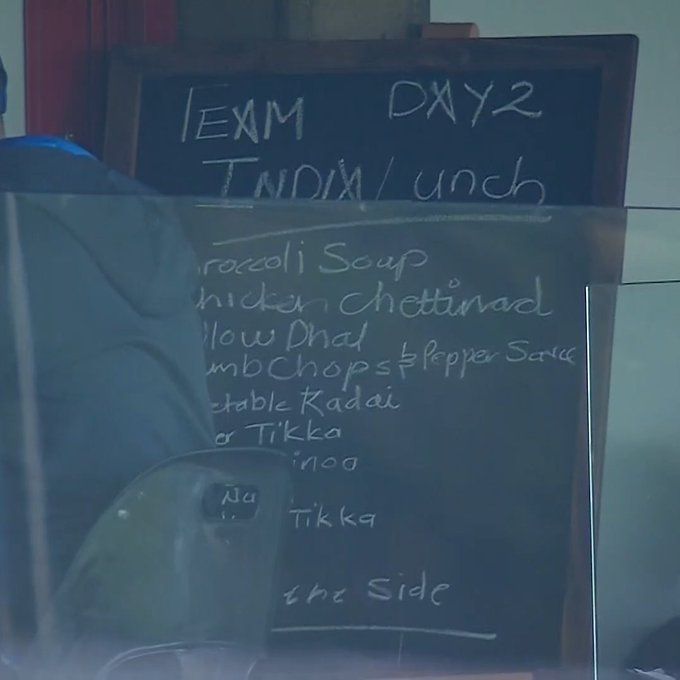 TEAM DAY 2
INDIA / unch
roccoli Soup
hicken Chettinad
llow Dhal
mb Chops & Pepper Sauce
etable Kadai
er Tikka
inoa
Tikka
the Side